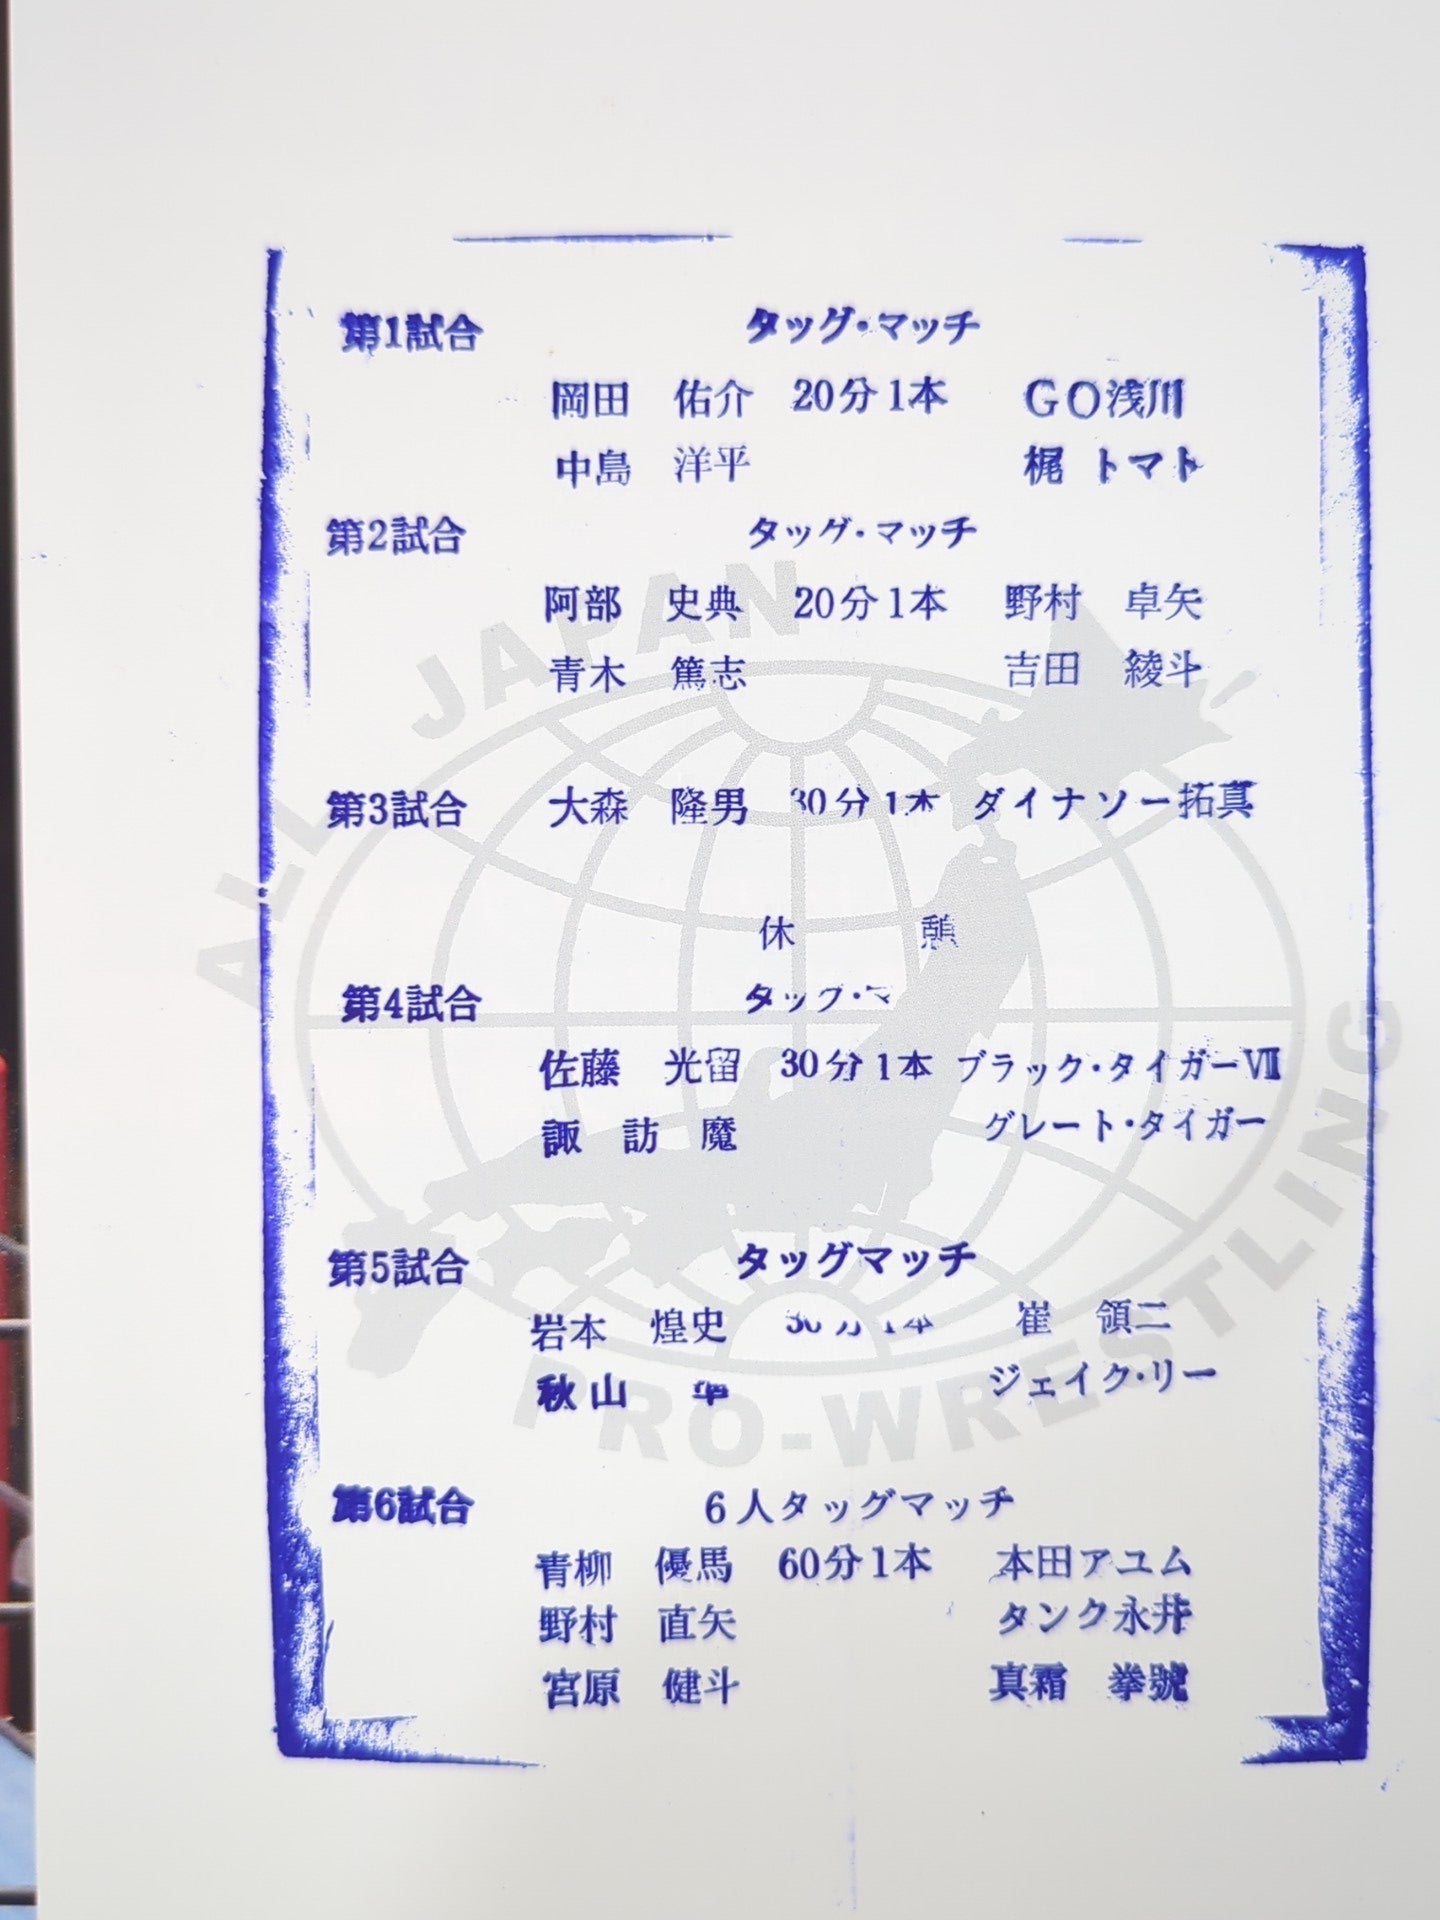 第1試合 タッグ・マッチ
岡田 佑介 20分1本 GO浅川
中島 洋平 梶 トマト
第2試合 タッグ・マッチ
阿部 史典 20分1本 野村 卓矢
青木 篤志 吉田 綾斗
第3試合 大森 隆男 30分1本 ダイナソー拓真
休 憩
第4試合 タッグ・マ
佐藤 光留 30分1本 ブラック・タイガーⅦ
諏 訪 魔 グレート・タイガー
第5試合 タッグマッチ
岩本 煌史 30分1本 崔 領二
秋山 準 ジェイク・リー
第6試合 6人タッグマッチ
青柳 優馬 60分1本 本田アユム
野村 直矢 タンク永井
宮原 健斗 真霜 拳號
ALL JAPAN
PRO-WRESTLING